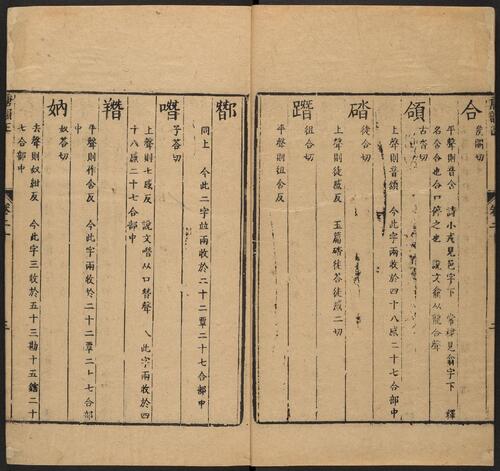 合
矦閤切
平聲則音含 詩小戎見邑字下 常棣見翕字下 釋
名含合也合口停之也 說文龕从龍合聲
頜
古沓切
上聲則音頷 今此字兩收於四十八感二十七合部中
䃚
徒合切
上聲則徒感反 玉篇䃚徒荅徒感二切
蹹
徂合切
平聲則徂含反
同上 今此二字竝兩收於二十二覃二十七合部中
噆
子荅切
上聲則七感反 說文噆从口朁聲 此字兩收於四
十八感二十七合部中
平聲則作含反 今此字兩收於二十二覃二十七合部
中
妠
奴荅切
去聲則奴紺反 今此字三收於五十三勘十五鎋二十
七合部中